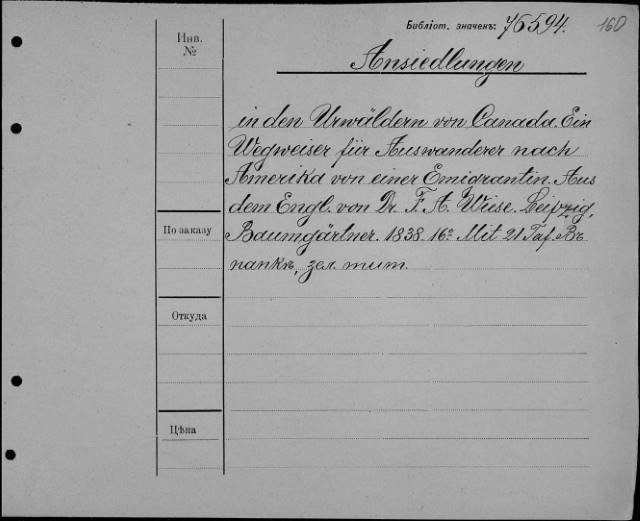 Библіот. значекъ: 76594. 160
Инв.
№
Ansiedlungen
in den Urwäldern von Canada. Ein
Wegweiser für Auswanderer nach
Amerika von einer Emigrantin. Aus
dem Engl. von Dr. F. A. Wiese. Leipzig,
По заказу
Baumgärtner. 1838. 16º Mit 21 Taf. Въ
папкѣ, зел. тит.
Откуда
Цѣна